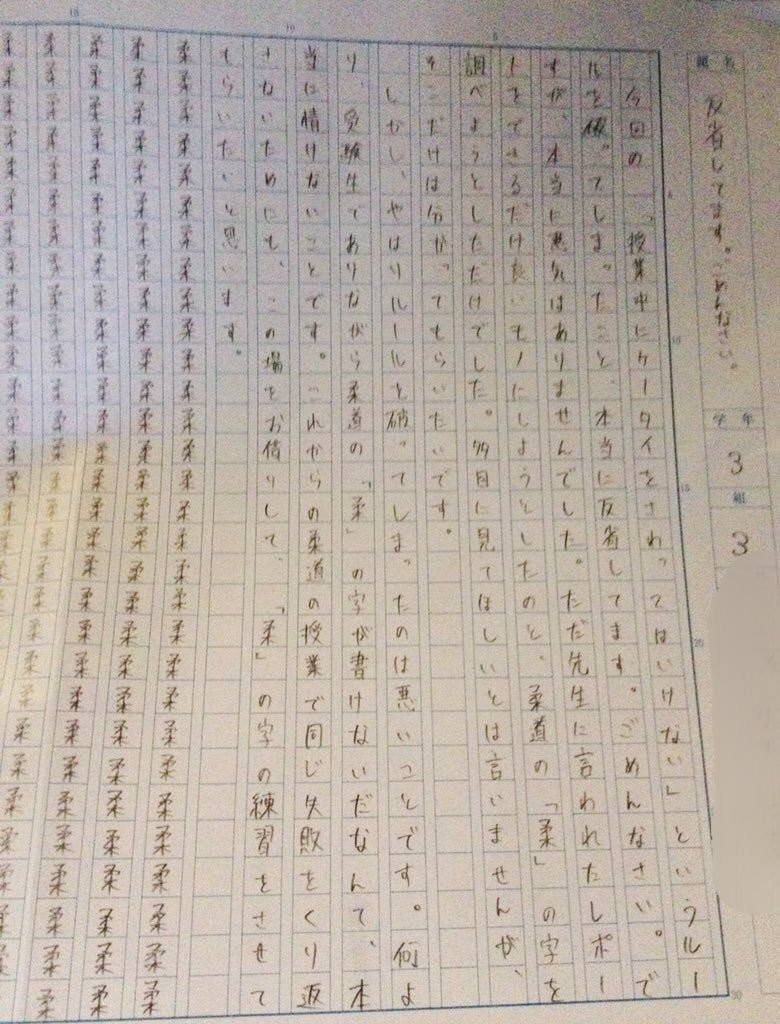 題名 反省してます。ごめんなさい。
学年 3
組 3
今回の「授業中にケータイをさわってはいけない」というルー
ルを破ってしまったこと、本当に反省してます。ごめんなさい。で
すが、本当に悪気はありませんでした。ただ先生に言われたレポー
トをできるだけ良いモノにしようとしたのと、柔道の「柔」の字を
調べようとしただけでした。多目に見てほしいとは言いませんが、
そこだけは分かってもらいたいです。
しかし、やはりルールを破ってしまったのは悪いことです。何よ
り、受験生でありながら柔道の「柔」の字が書けないだなんて、本
当に情けないことです。これからの柔道の授業で同じ失敗をくり返
さないためにも、この場をお借りして、「柔」の字の練習をさせて
もらいたいと思います。
柔柔柔柔柔柔柔柔柔柔柔柔柔柔柔柔柔柔柔柔柔柔柔柔柔柔柔柔柔柔
柔柔柔柔柔柔柔柔柔柔柔柔柔柔柔柔柔柔柔柔柔柔柔柔柔柔柔柔柔柔
柔柔柔柔柔柔柔柔柔柔柔柔柔柔柔柔柔柔柔柔柔柔柔柔柔柔柔柔柔柔
柔柔柔柔柔柔柔柔柔柔柔柔柔柔柔柔柔柔柔柔柔柔柔柔柔柔柔柔柔柔